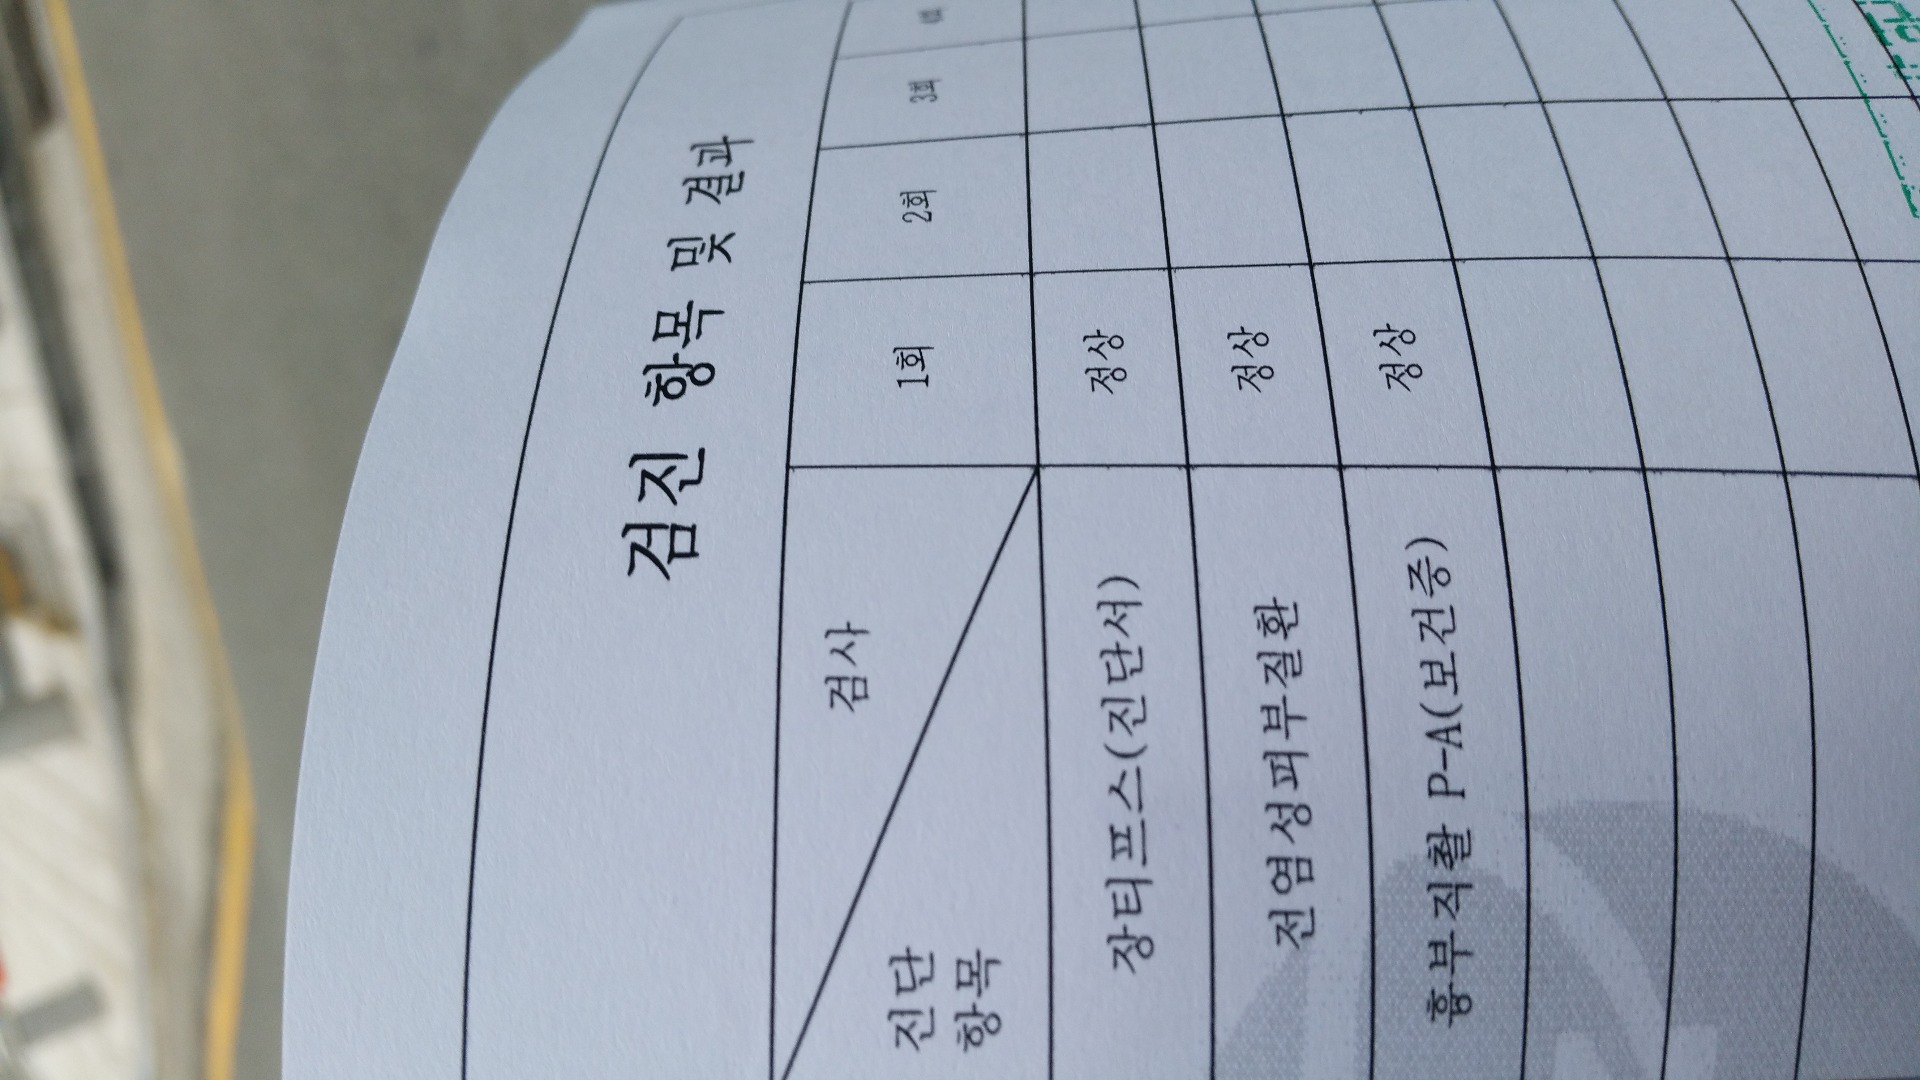 검진 항목 및 결과
검사 1회 2회 3회
진단
항목
장티프스(진단서) 정상
전염성피부질환 정상
흉부직촬 P-A(보건증) 정상